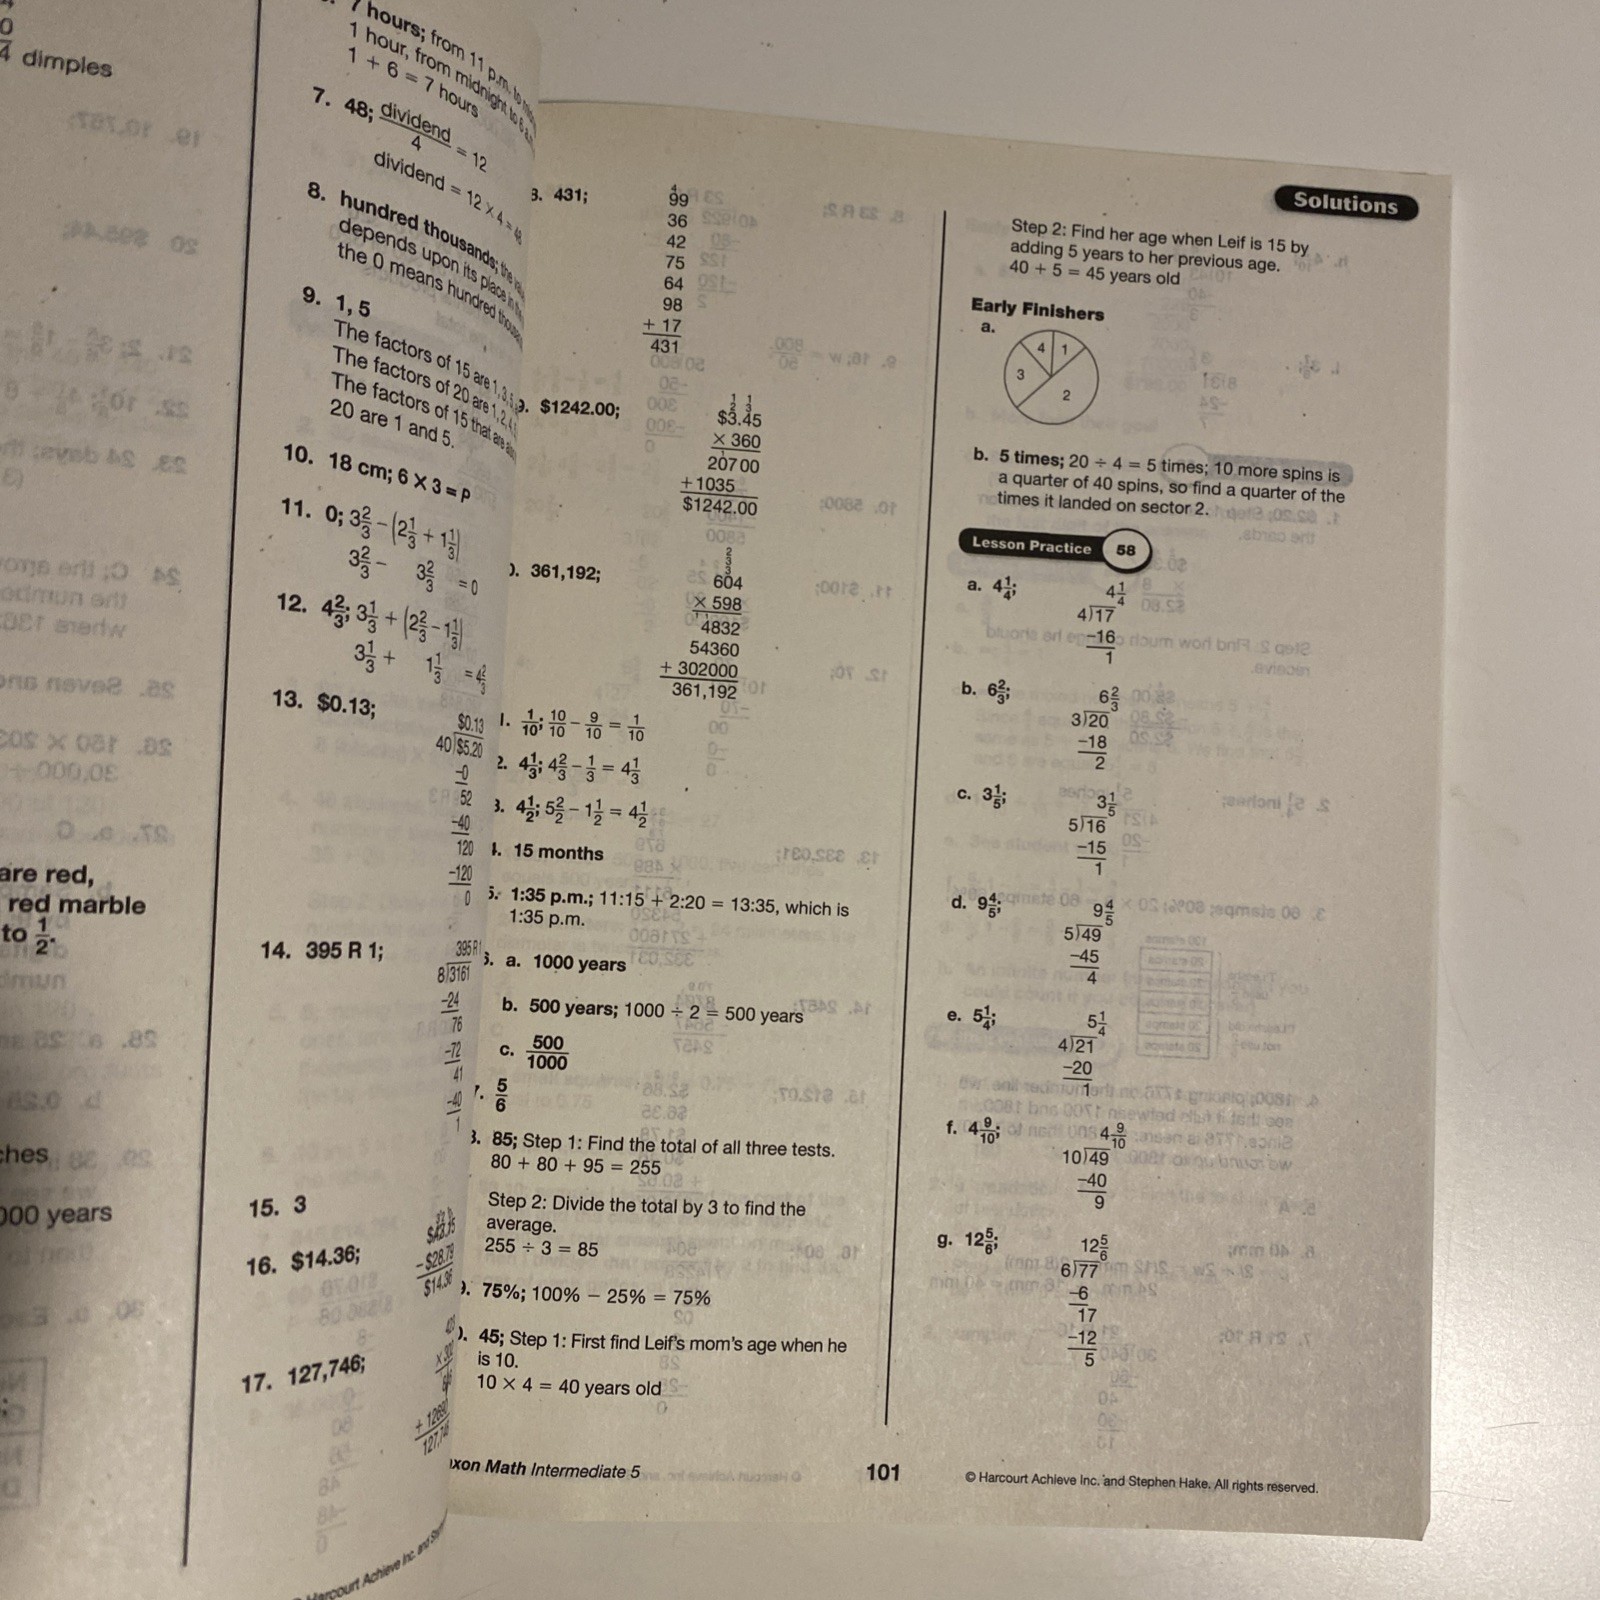 4 dimples
are red,
red marble
to 1/2.
ches
000 years
7 hours; from 11 p.m. to
1 hour, from midnight to 6
1 + 6 = 7 hours
7. 48; dividend/4 = 12
dividend = 12 × 4 = 48
8. hundred thousands; the
depends upon its place in
the 0 means hundred
9. 1, 5
The factors of 15 are 1, 3, 5,
The factors of 20 are 1, 2, 4,
The factors of 15 that are
20 are 1 and 5.
10. 18 cm; 6 × 3 = p
11. 0; 3 2/3 − (2 1/3 + 1 1/3)
3 2/3 − 3 2/3 = 0
12. 4 2/3; 3 1/3 + (2 2/3 − 1 1/3)
3 1/3 + 1 1/3 = 4 2/3
13. $0.13;
$0.13
40)$5.20
−0
52
−40
120
−120
0
14. 395 R 1;
395 R 1
8)3161
−24
76
−72
41
−40
1
15. 3
16. $14.36;
− $28.79
$14.36
17. 127,746;
Harcourt Achieve Inc. and
431;
4
99
36
42
75
64
98
+ 17
431
$1242.00;
1 1
2 3
$3.45
× 360
20700
+ 1035
$1242.00
361,192;
2
3
3
604
× 598
4832
54360
+ 302000
361,192
1. 1/10; 10/10 − 9/10 = 1/10
2. 4 1/3; 4 2/3 − 1/3 = 4 1/3
3. 4 1/2; 5 2/2 − 1 1/2 = 4 1/2
15 months
5. 1:35 p.m.; 11:15 + 2:20 = 13:35, which is
1:35 p.m.
a. 1000 years
b. 500 years; 1000 ÷ 2 = 500 years
c. 500/1000
5/6
85; Step 1: Find the total of all three tests.
80 + 80 + 95 = 255
Step 2: Divide the total by 3 to find the
average.
255 ÷ 3 = 85
75%; 100% − 25% = 75%
45; Step 1: First find Leif's mom's age when he
is 10.
10 × 4 = 40 years old
xon Math Intermediate 5
101
Solutions
Step 2: Find her age when Leif is 15 by
adding 5 years to her previous age.
40 + 5 = 45 years old
Early Finishers
a.
4 1
3
2
b. 5 times; 20 ÷ 4 = 5 times; 10 more spins is
a quarter of 40 spins, so find a quarter of the
times it landed on sector 2.
Lesson Practice 58
a. 4 1/4;
4 1/4
4)17
−16
1
b. 6 2/3;
6 2/3
3)20
−18
2
c. 3 1/5;
3 1/5
5)16
−15
1
d. 9 4/5;
9 4/5
5)49
−45
4
e. 5 1/4;
5 1/4
4)21
−20
1
f. 4 9/10;
4 9/10
10)49
−40
9
g. 12 5/6;
12 5/6
6)77
−6
17
−12
5
© Harcourt Achieve Inc. and Stephen Hake. All rights reserved.